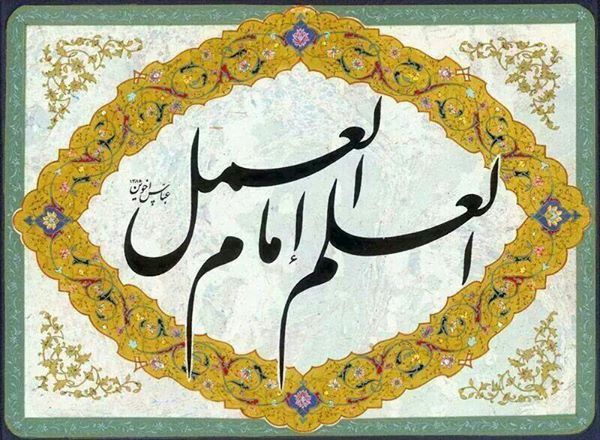 العلم إمام العمل
عباس اخوین